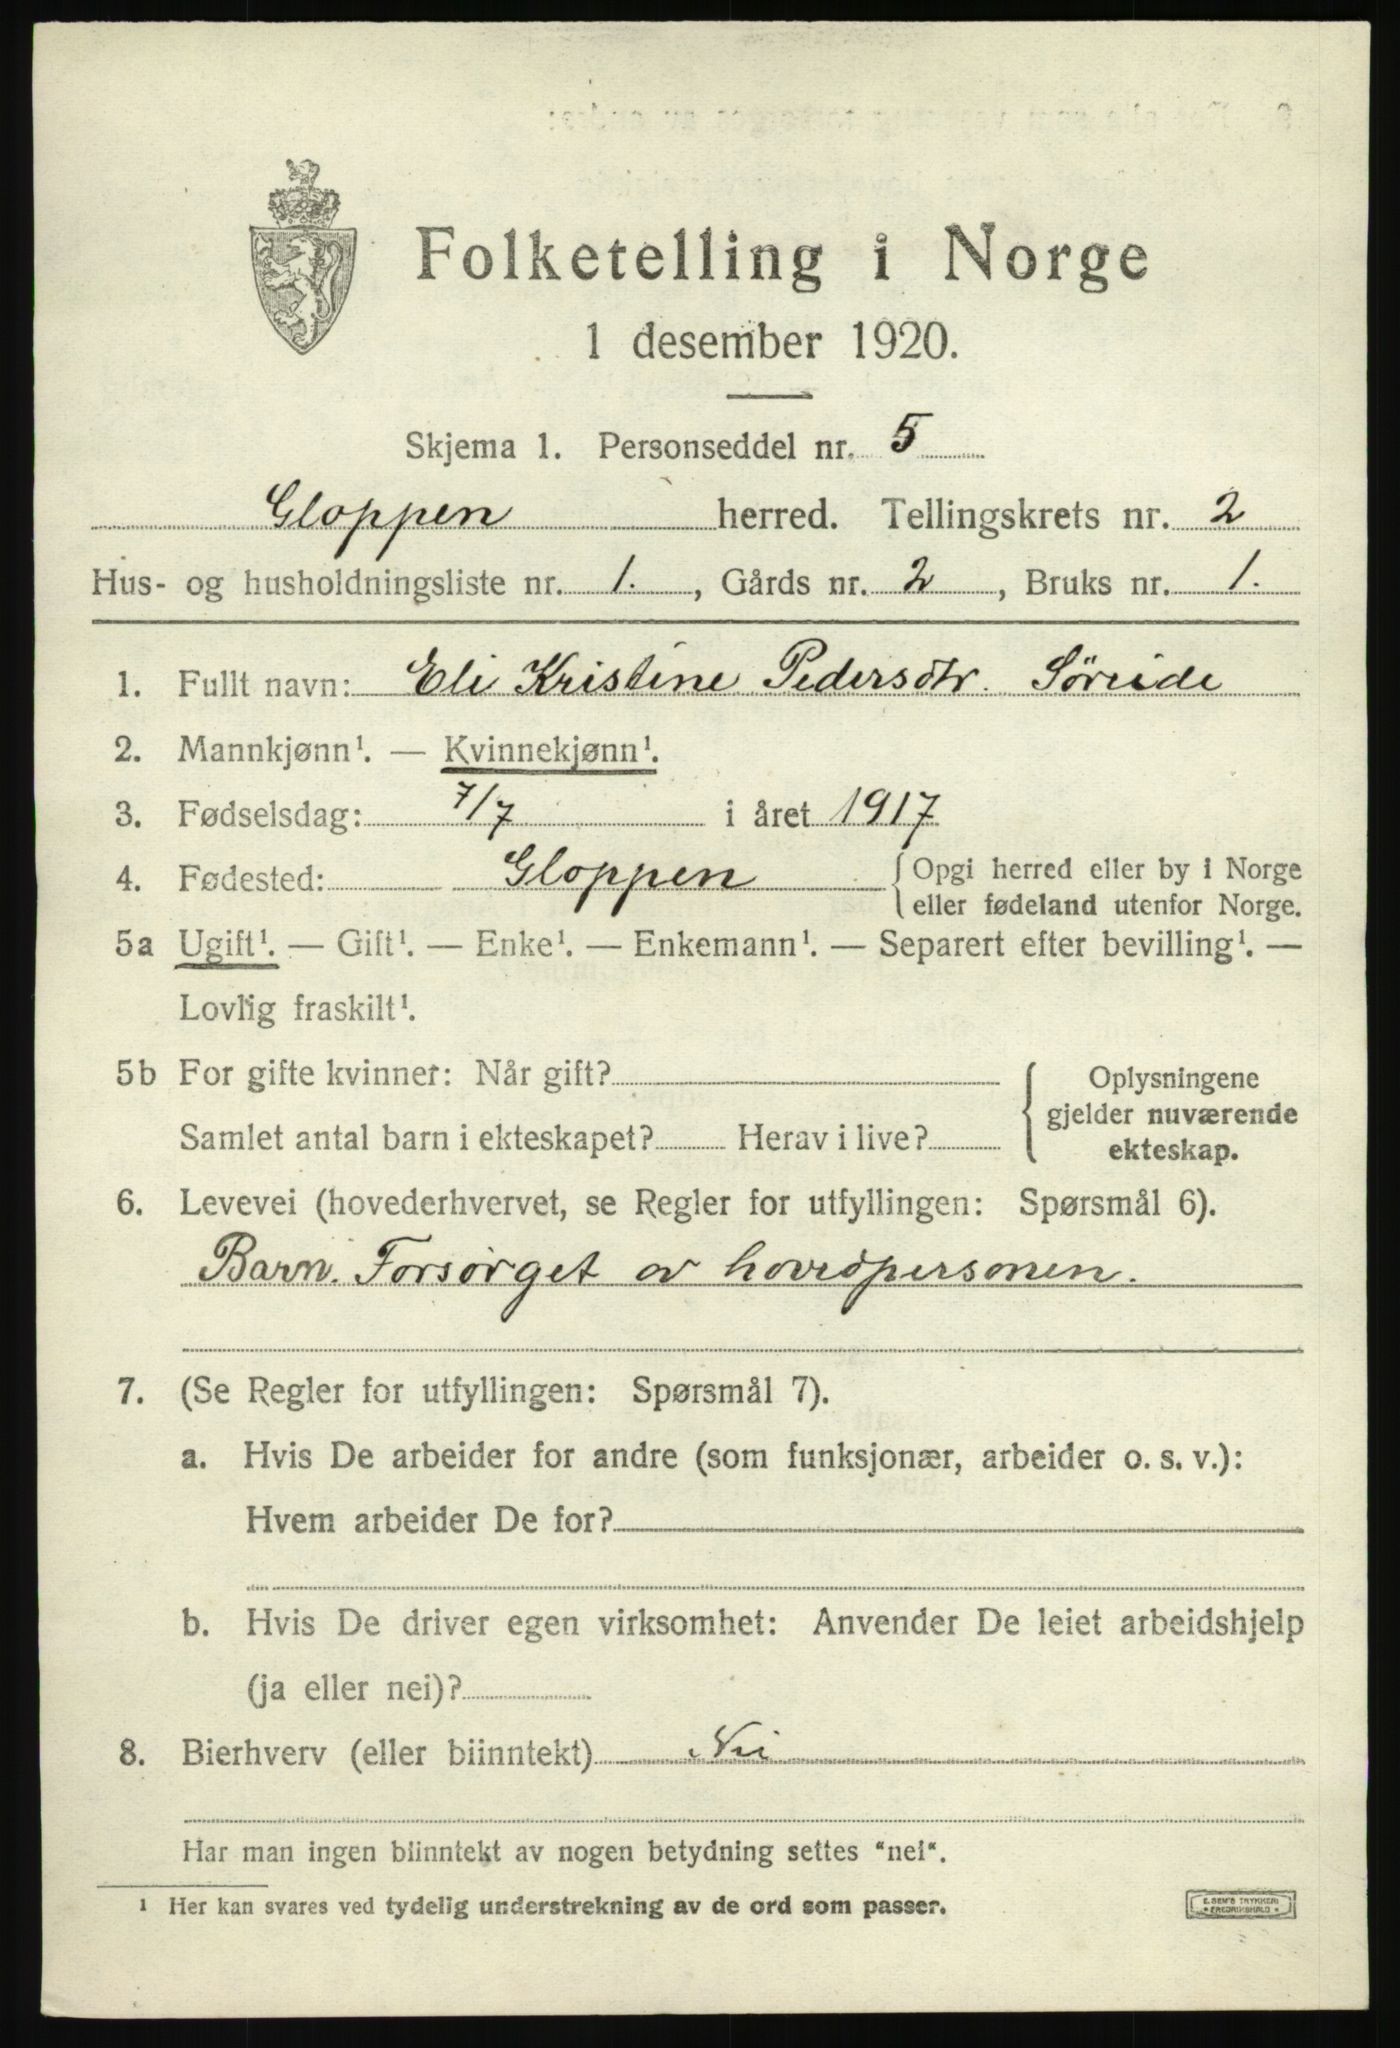 Folketelling i Norge
1 desember 1920.
Skjema 1. Personseddel nr. 5
Gloppen herred. Tellingskrets nr. 2
Hus- og husholdningsliste nr. 1. , Gårds nr. 2 , Bruks nr. 1.
1. Fullt navn: Eli Kristine Pedersdtr. Söreide
2. Mannkjønn¹. — Kvinnekjønn¹.
3. Fødselsdag: 7/7 i året 1917
4. Fødested: Gloppen { Opgi herred eller by i Norge
eller fødeland utenfor Norge.
5a Ugift¹. — Gift¹. — Enke¹. — Enkemann¹. — Separert efter bevilling¹. —
Lovlig fraskilt¹.
5b For gifte kvinner: Når gift?
Samlet antal barn i ekteskapet? Herav i live?
{ Oplysningene
gjelder nuværende
ekteskap.
6. Levevei (hovederhvervet, se Regler for utfyllingen: Spørsmål 6).
Barn. Forsørget av hovedpersonen.
7. (Se Regler for utfyllingen: Spørsmål 7).
a. Hvis De arbeider for andre (som funksjonær, arbeider o. s. v.):
Hvem arbeider De for?
b. Hvis De driver egen virksomhet: Anvender De leiet arbeidshjelp
(ja eller nei)?
8. Bierhverv (eller biinntekt) Nei
Har man ingen biinntekt av nogen betydning settes "nei".
¹ Her kan svares ved tydelig understrekning av de ord som passer.
E. SEM'S TRYKKERI
FREDRIKSHALD